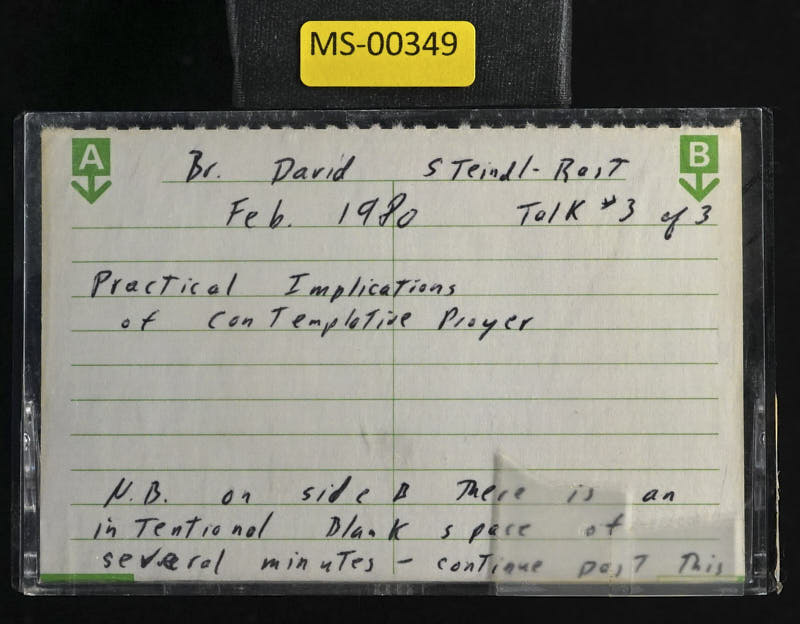 MS-00349
A B
Br. David Steindl-Rast
Feb. 1980 Talk #3 of 3
Practical Implications
of Contemplative Prayer
N.B. on side B There is an
intentional Blank space of
several minutes – continue past This